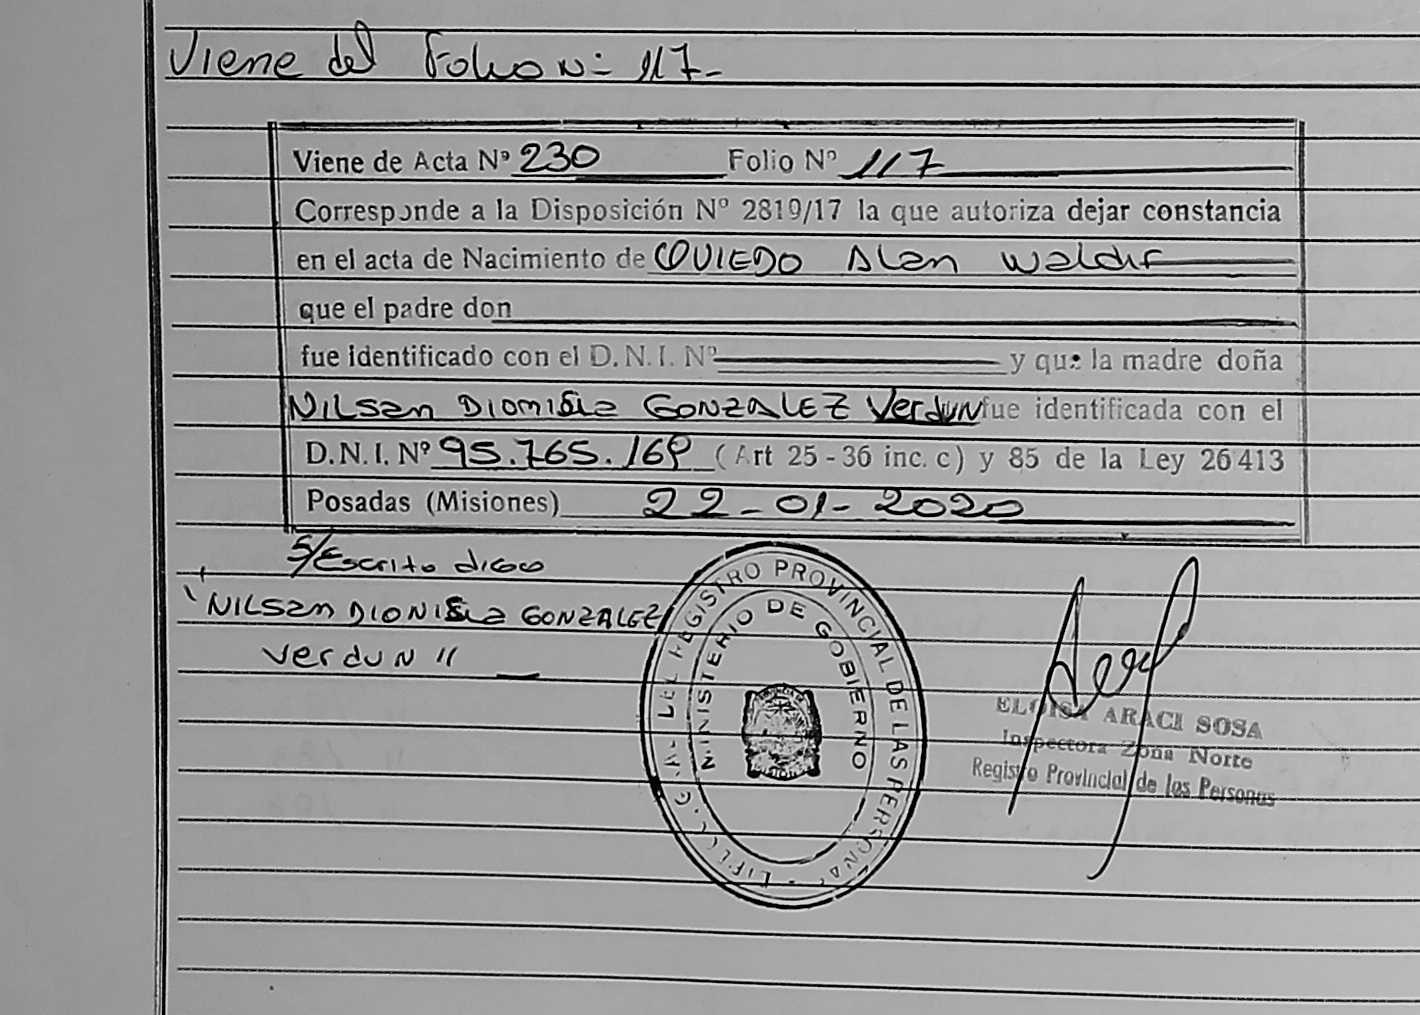 Viene del Folio Nº 117-
Viene de Acta Nº 230 Folio Nº 117
Corresponde a la Disposición Nº 2819/17 la que autoriza dejar constancia
en el acta de Nacimiento de OVIEDO Alan Waldir
que el padre don
fue identificado con el D.N.I. Nº y que la madre doña
NILSan DIONISIa GONZALEZ VerduN fue identificada con el
D.N.I. Nº 95.765.169 (Art 25-36 inc. c) y 85 de la Ley 26413
Posadas (Misiones) 22-01-2020
S/Escrito digo
"NILSan DIONISIa GONZALEZ
VerduN"
REGISTRO PROVINCIAL DE LAS PERSONAS
MINISTERIO DE GOBIERNO
ELOISA ARACI SOSA
Inspectora Zona Norte
Registro Provincial de las Personas